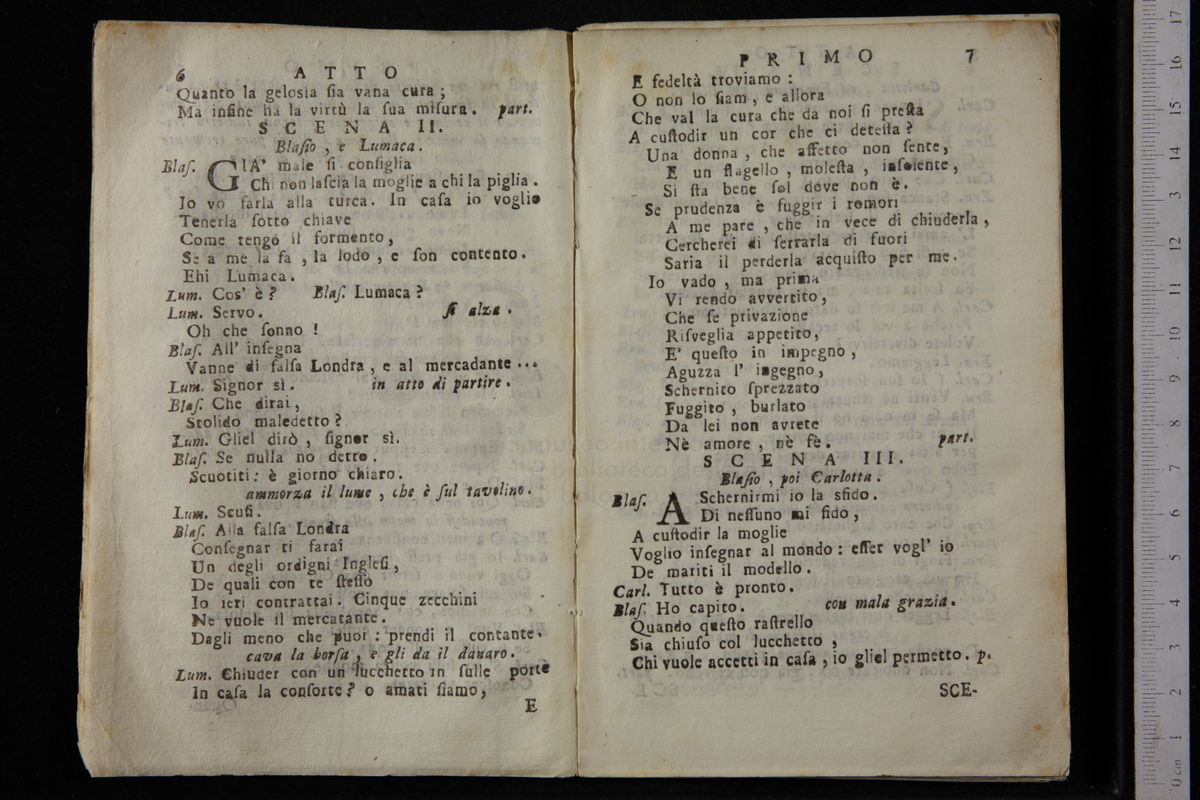 6 ATTO
Quanto la gelosia ſia vana cura ;
Ma infine ha la virtù la ſua miſura. part.
SCENA II.
Blaſio , e Lumaca.
Blaſ. GIA' male ſi conſiglia
Chi non laſcia la moglie a chi la piglia .
Io vo farla alla turca. In caſa io voglio
Tenerla ſotto chiave
Come tengo il formento,
Se a me la fa , la lodo , e ſon contento.
Ehi Lumaca.
Lum. Cos' è ? Blaſ. Lumaca ?
Lum. Servo. ſi alza .
Oh che ſonno !
Blaſ. All' inſegna
Vanne di falſa Londra , e al mercadante ...
Lum. Signor sì. in atto di partire .
Blaſ. Che dirai,
Stolido maledetto ?
Lum. Gliel dirò , ſignor sì.
Blaſ. Se nulla ho detto.
Scuotiti : è giorno chiaro.
ammorza il lume , che è ſul tavolino.
Lum. Scuſi.
Blaſ. Alla falſa Londra
Conſegnar ti farai
Un degli ordigni Ingleſi,
De quali con te ſteſſo
Io ieri contrattai. Cinque zecchini
Ne vuole il mercatante.
Dagli meno che puoi : prendi il contante.
cava la borſa , e gli da il danaro.
Lum. Chiuder con un lucchetto in ſulle porte
In caſa la conſorte ? o amati ſiamo,
E
PRIMO 7
E fedeltà troviamo :
O non lo ſiam , e allora
Che val la cura che da noi ſi preſta
A cuſtodir un cor che ci deteſta ?
Una donna , che affetto non ſente,
E un flagello , moleſta , inſolente,
Si ſta bene ſol dove non è.
Se prudenza è fuggir i romori
A me pare , che in vece di chiuderla ,
Cercherei di ſerrarla di fuori
Saria il perderla acquiſto per me.
Io vado , ma prima
Vi rendo avvertito,
Che ſe privazione
Riſveglia appetito,
E' queſto in impegno ,
Aguzza l' ingegno,
Schernito ſprezzato
Fuggito , burlato
Da lei non avrete
Nè amore , nè fè. part.
SCENA III.
Blaſio , poi Carlotta .
Blaſ. A Schernirmi io la sfido.
Di neſſuno mi fido ,
A cuſtodir la moglie
Voglio inſegnar al mondo : eſſer vogl' io
De mariti il modello.
Carl. Tutto è pronto.
Blaſ. Ho capito. con mala grazia.
Quando queſto raſtrello
Sia chiuſo col lucchetto ,
Chi vuole accetti in caſa , io gliel permetto. p.
SCE-
17
16
15
14
13
12
11
10
9
8
7
6
5
4
3
2
1
0 cm